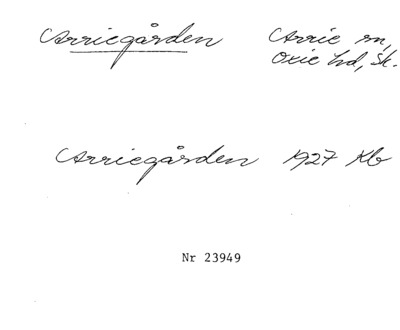 Arriegården Arrie sn,
Oxie hd, Sk.
Arriegården 1927 Kb
Nr 23949